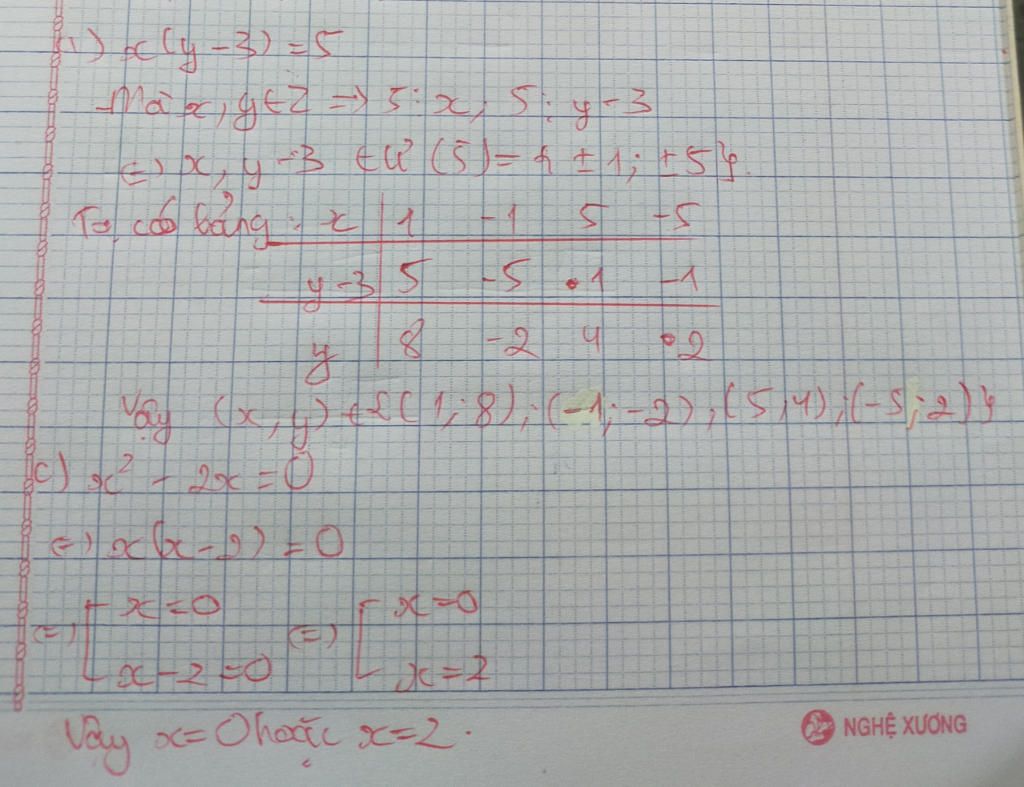 b) x(y-3) = 5
Mà x, y ∈ Z => 5 ⋮ x; 5 ⋮ y-3
<=> x, y-3 ∈ Ư(5) = { ±1; ±5 }.
Ta có bảng: x | 1 -1 5 -5
y-3 | 5 -5 1 -1
y | 8 -2 4 2
Vậy (x, y) ∈ {(1; 8); (-1; -2); (5; 4); (-5; 2)}
c) x² - 2x = 0
<=> x(x-2) = 0
<=> [ x = 0 <=> [ x = 0
x - 2 = 0 x = 2
Vậy x = 0 hoặc x = 2.
NGHỆ XƯƠNG